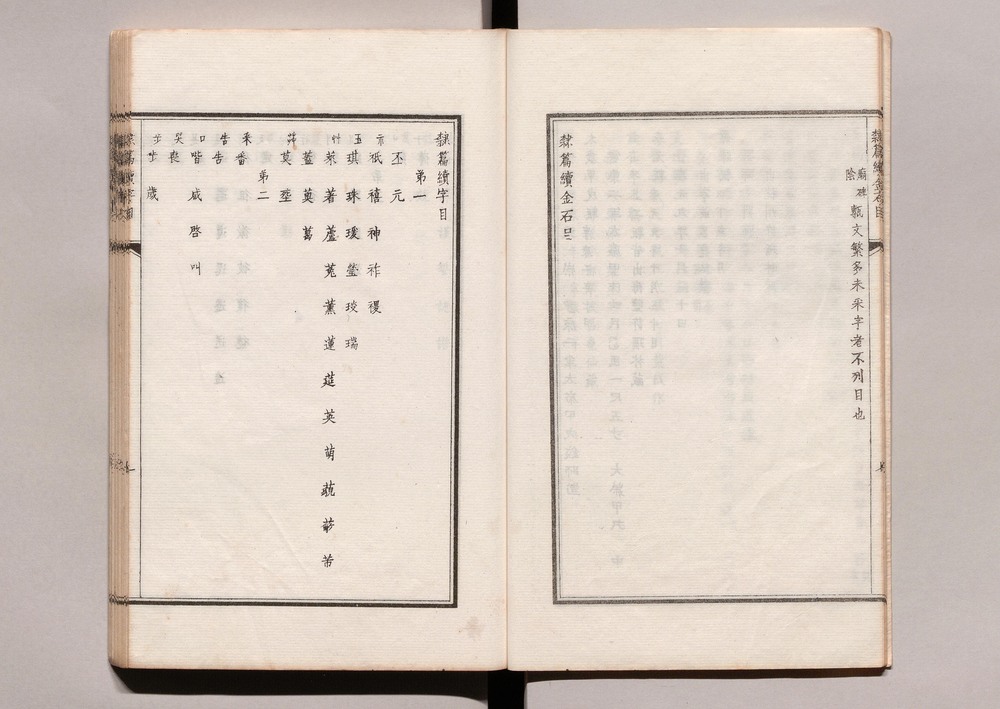 隸篇續金石目
廟碑陰
甎文繁多未采字者不列目也
隸篇續金石目
隸篇續字目
第一
丕 元
示 祇 禧 神 祚 禝
玉 琪 珠 瑗 瑩 玫 瑞
艸 萊 著 蘆 菟 薰 蓮 莚 英 萌 蔬 蓚 芾
蓋 萸 葛
茻 莫 塟
第二
釆 番
告 告
口 喈 咸 啓 叫
哭 喪
步 步 歲